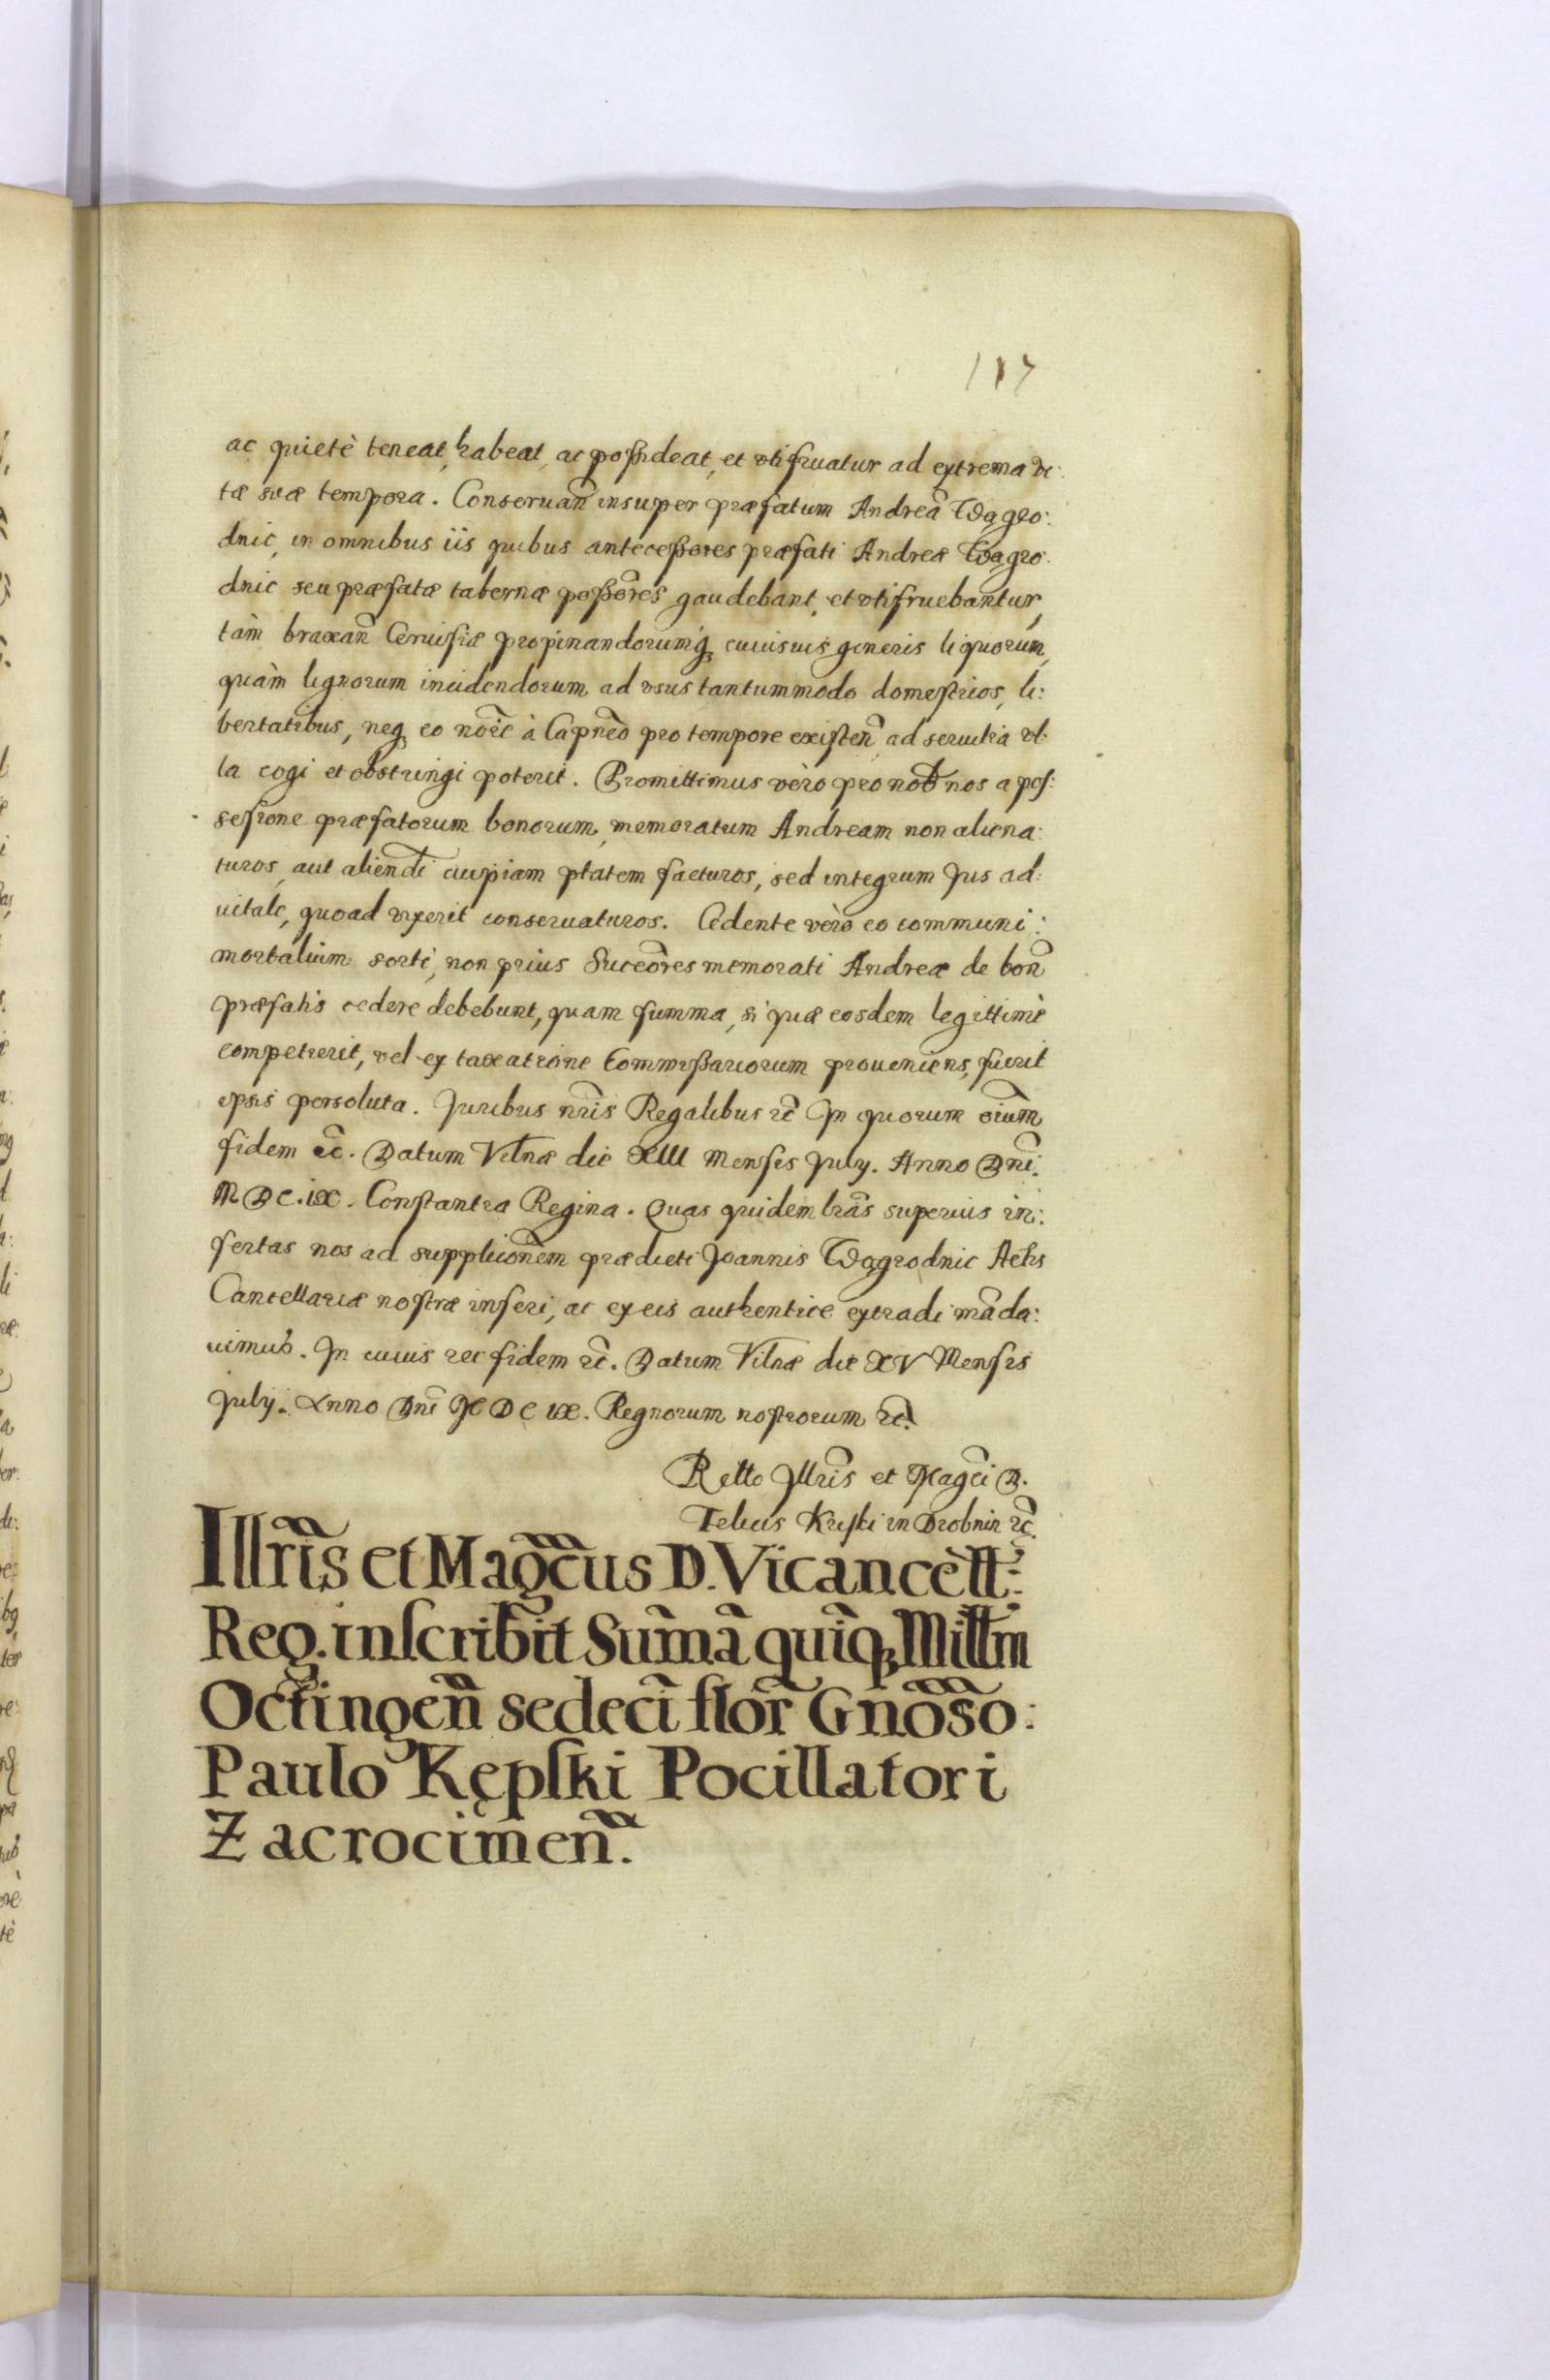 117
ac quietè teneat, habeat, ac possideat, et vtifruatur ad extrema vi:
tæ suæ tempora. Conseruan̄ insuper præfatum Andreā Wągro:
dnic, in omnibus iis quibus antecessores præfati Andreæ Wągro:
dnic seu præfatæ tabernæ possores̄ gaudebant, et vtifruebantur,
tàm braxan̄ Ceruisiæ propinandorumq̨ cuiusuis generis liquorum,
quàm lignorum incidendorum ad vsus tantummodo domesticos, li:
bertatibus, neq̨ eo noīe à Capneō pro tempore existen̄ ad seruitia vl:
la cogi et obstringi poterit. Promittimus vèro pro nob̄ nos a pos:
sessione præfatorum bonorum, memoratum Andream non aliena:
turos, aut aliendī cuipiam ptatem facturos, sed integrum Jus ad:
uitale, quoad vixerit conseruaturos. Cedente vèro eo communi:
mortalium sorti, non prius Succōres memorati Andreæ de bon̄
præfatis cedere debebunt, quam summa, si quæ eosdem legittimè
competierit, vel ex taxatione Commissariorum proueniens, fuerit
ipsis persoluta. Juribus nrīs Regalibus r̄c Jn quorum oiūm
fidem r̄c. Datum Vilnæ die XIII Mensis July. Anno Dnī.
M D C. ix. Constantia Regina. Quas quidem lrās superius in:
sertas nos ad supplicionēm prædicti Joannis Wągrodnic Actis
Cancellariæ nostræ inseri, ac ex eis authentice extradi māda:
uimus. Jn cuius rei fidem r̄c. Datum Vilnæ die XV Mensis
July. Anno Dnī M D C ix. Regnorum nostrorum r̄c.
Rella Jllrīs et Magcī D.
Felicis Kriski in Drobnin r̄c.
Illrīs et Magc̄us D. Vicancèll:
Reg. inscribit Sum̄ā quīq̨ Millm̄
Octingen̄ sedecī flor̄ Gnōso:
Paulo Kępski Pocillatori
Zacrocimen̄.